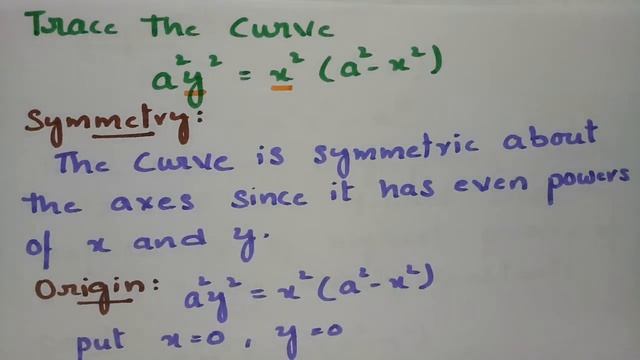 Trace the Curve
a²y² = x² (a² - x²)
Symmetry:
The Curve is symmetric about
the axes since it has even powers
of x and y.
Origin: a²y² = x²(a² - x²)
put x=0, y=0